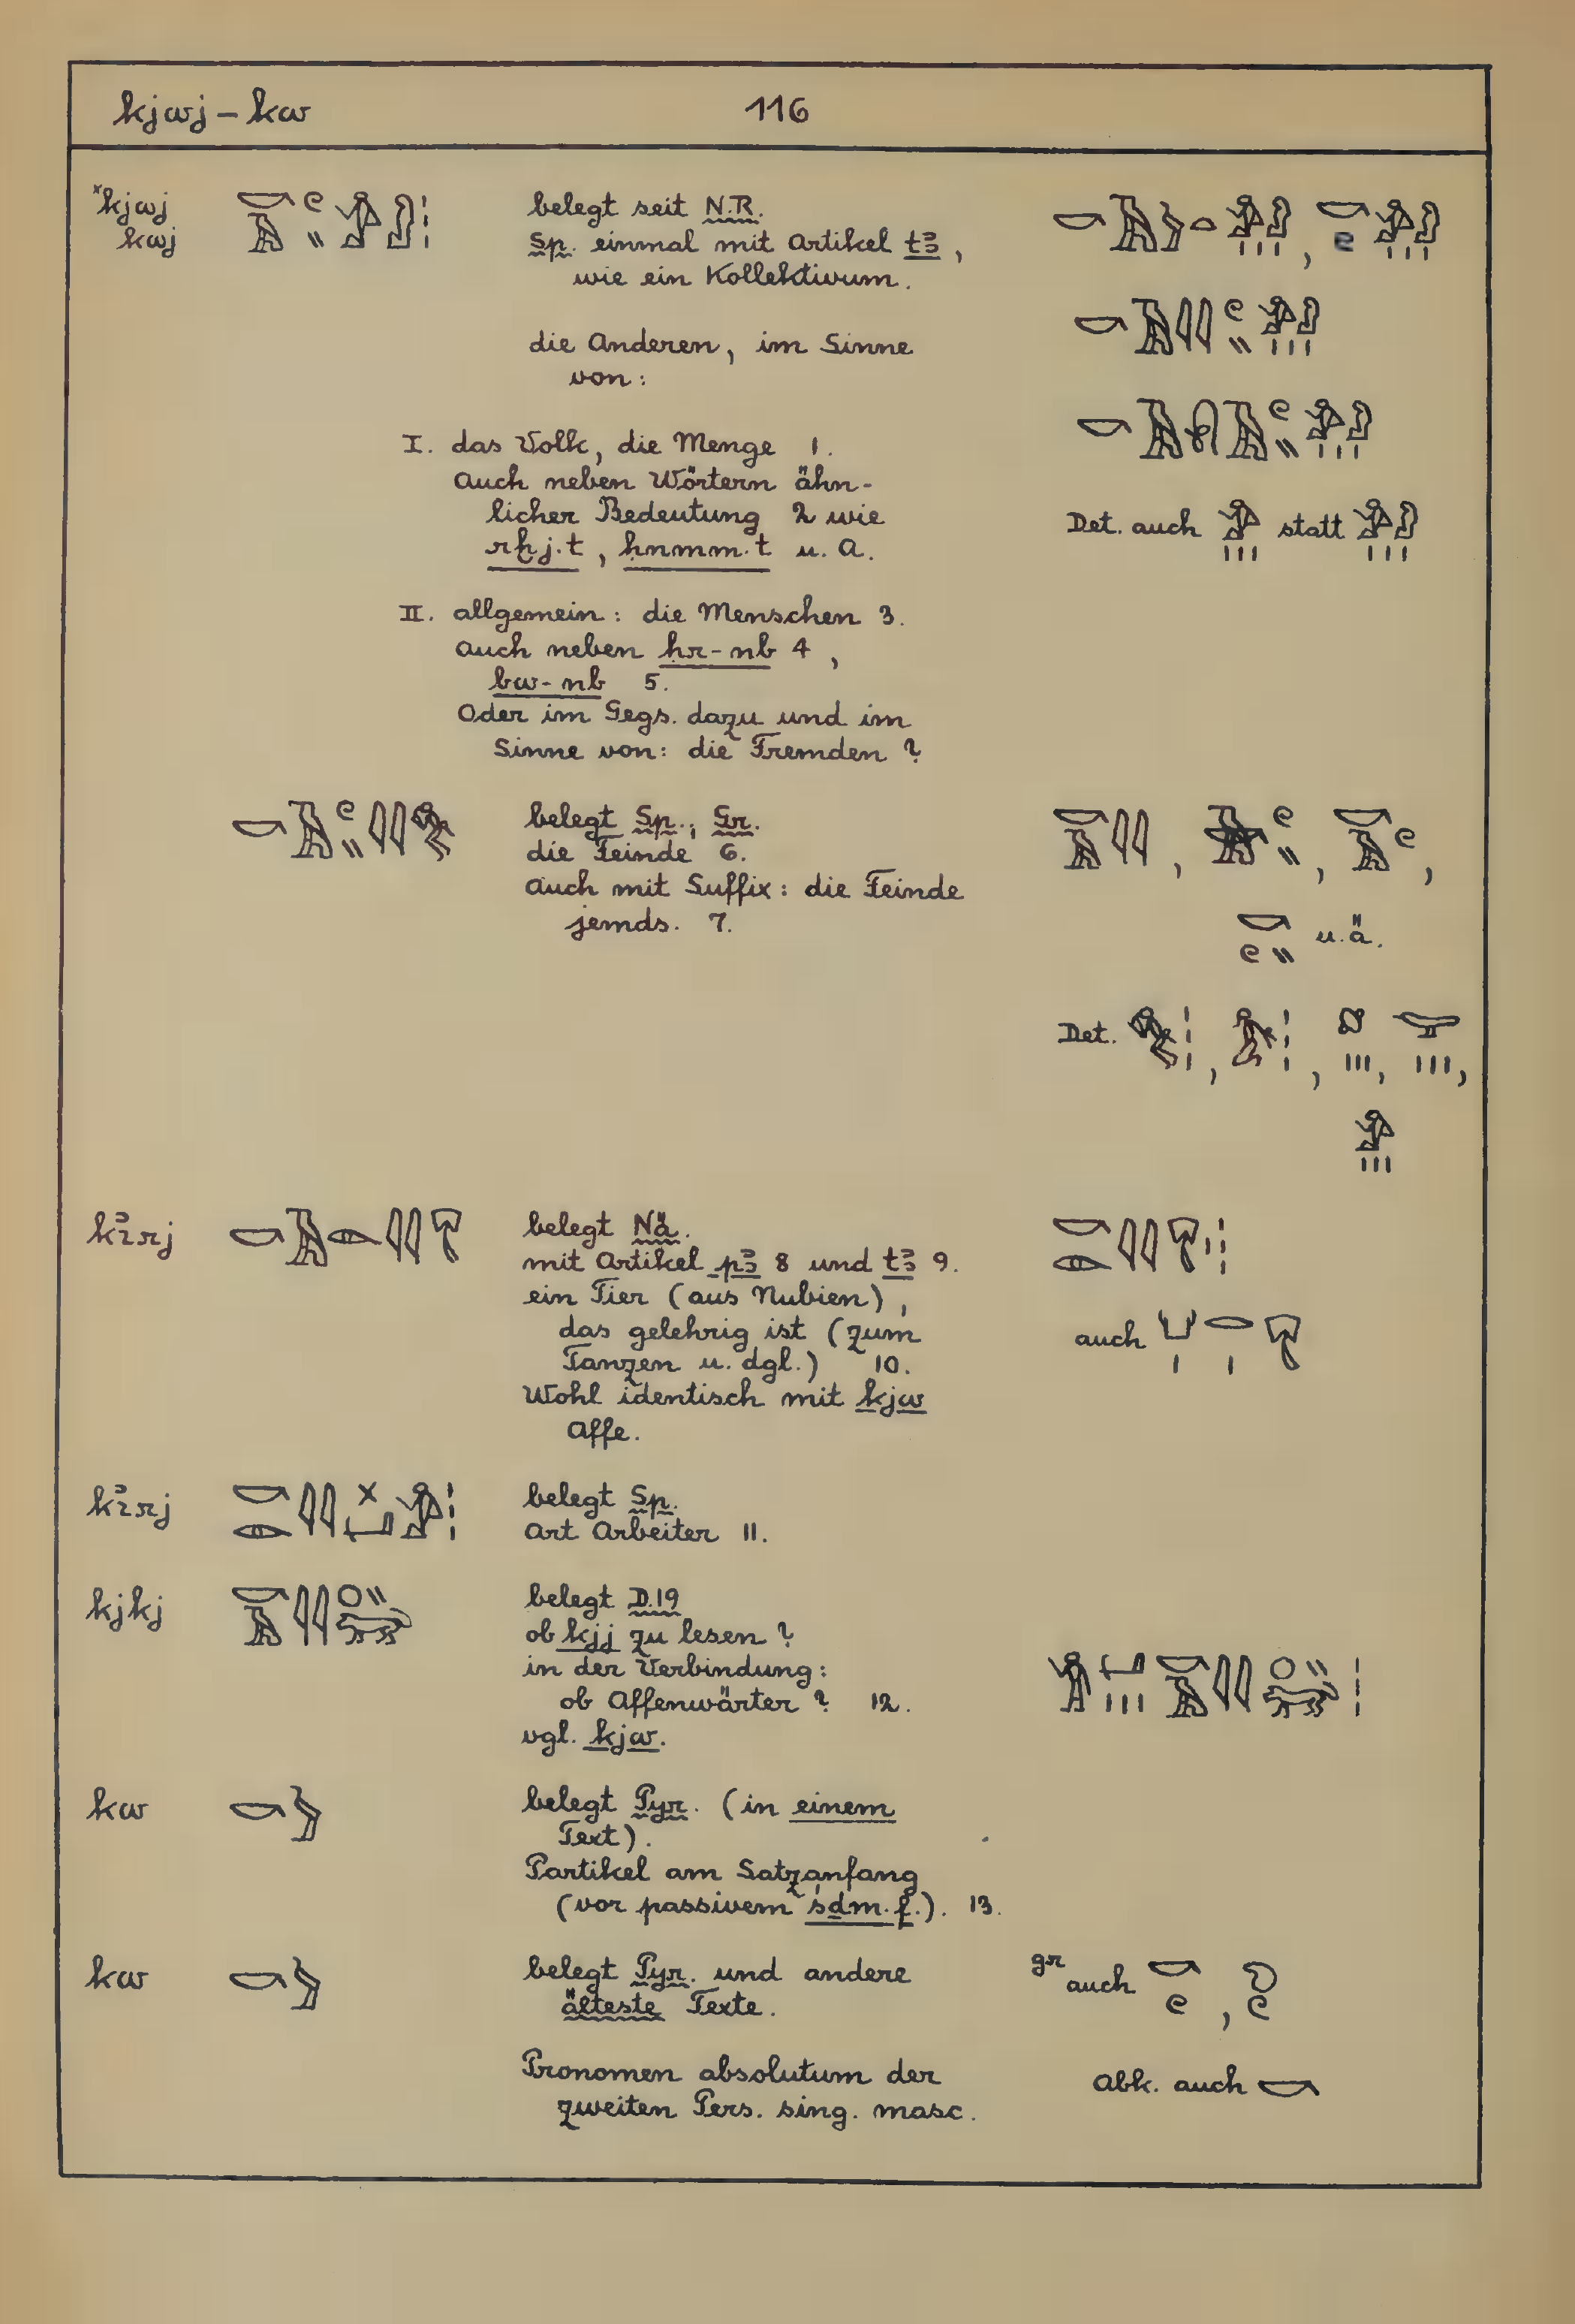 kjwj – kw 116
*kjwj
kwj
belegt seit N.R.
Sp. einmal mit Artikel tꜣ,
wie ein Kollektivum.
die Anderen, im Sinne
von:
I. das Volk, die Menge 1.
Auch neben Wörtern ähn-
licher Bedeutung 2 wie
rḫj.t, ḥnmm.t u. a.
Det. auch statt
II. allgemein: die Menschen 3.
auch neben ḥr-nb 4,
bw-nb 5.
Oder im Gegs. dazu und im
Sinne von: die Fremden?
belegt Sp.; Gr.
die Feinde 6.
auch mit Suffix: die Feinde
jemds. 7.
u. ä.
Det.
kꜣrj
belegt Nä.
mit Artikel pꜣ 8 und tꜣ 9.
ein Tier (aus Nubien),
das gelehrig ist (zum
Tanzen u. dgl.) 10.
Wohl identisch mit kjw
Affe.
auch
kꜣrj
belegt Sp.
Art Arbeiter 11.
kjkj
belegt D.19
ob kjj zu lesen?
in der Verbindung:
ob Affenwärter? 12.
vgl. kjw.
kw
belegt Pyr. (in einem
Text).
Partikel am Satzanfang
(vor passivem śḏm.f.). 13.
kw
belegt Pyr. und andere
älteste Texte.
gr auch
Pronomen absolutum der
zweiten Pers. sing. masc.
Abk. auch